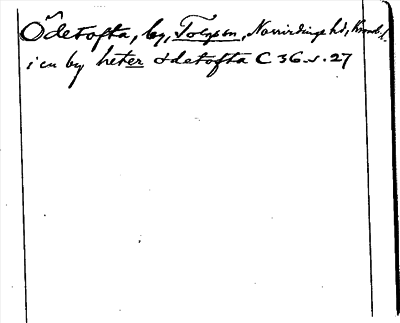 Ödetofta, by, Torpsn, Norrvidinge hd, Kronob. l.
i en by heter ödetofta C 36 s. 27